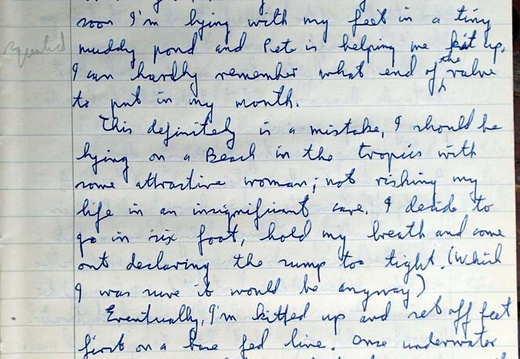 soon I'm lying with my feet in a tiny
muddy pond and Pete is helping me kit up,
I can hardly remember what end of the valve
to put in my mouth.
This definitely is a mistake, I should be
lying on a Beach in the tropics with
some attractive woman; not risking my
life in an insignificant cave. I decide to
go in six foot, hold my breath and come
out declaring the sump too tight. (Which
I was sure it would be anyway)
Eventually, I'm kitted up and set off feet
first on a base fed line. Once underwater